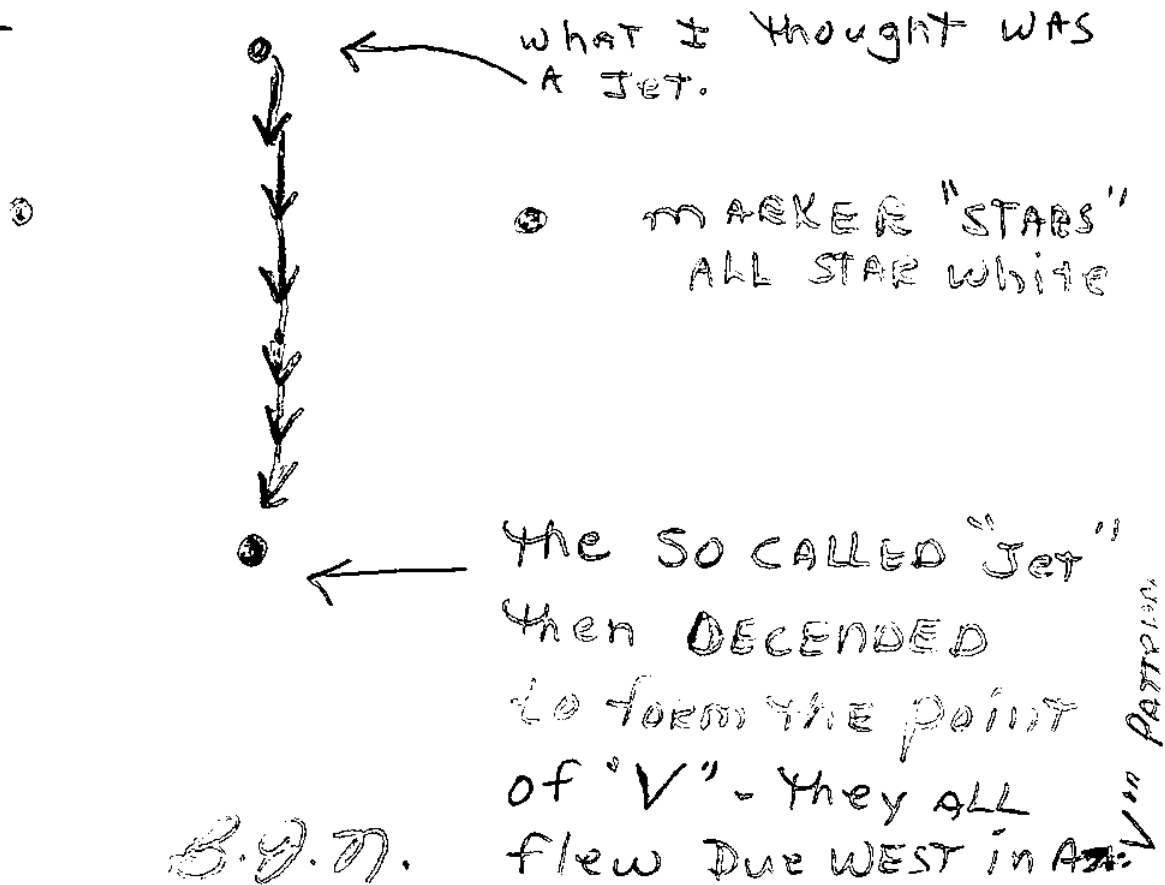 what I thought was
A Jet.
MARKER "STARS"
ALL STAR white
the SO CALLED "Jet"
then DECENDED
to form the point
of "V" - they ALL
flew Due WEST in A
V" PATTERN